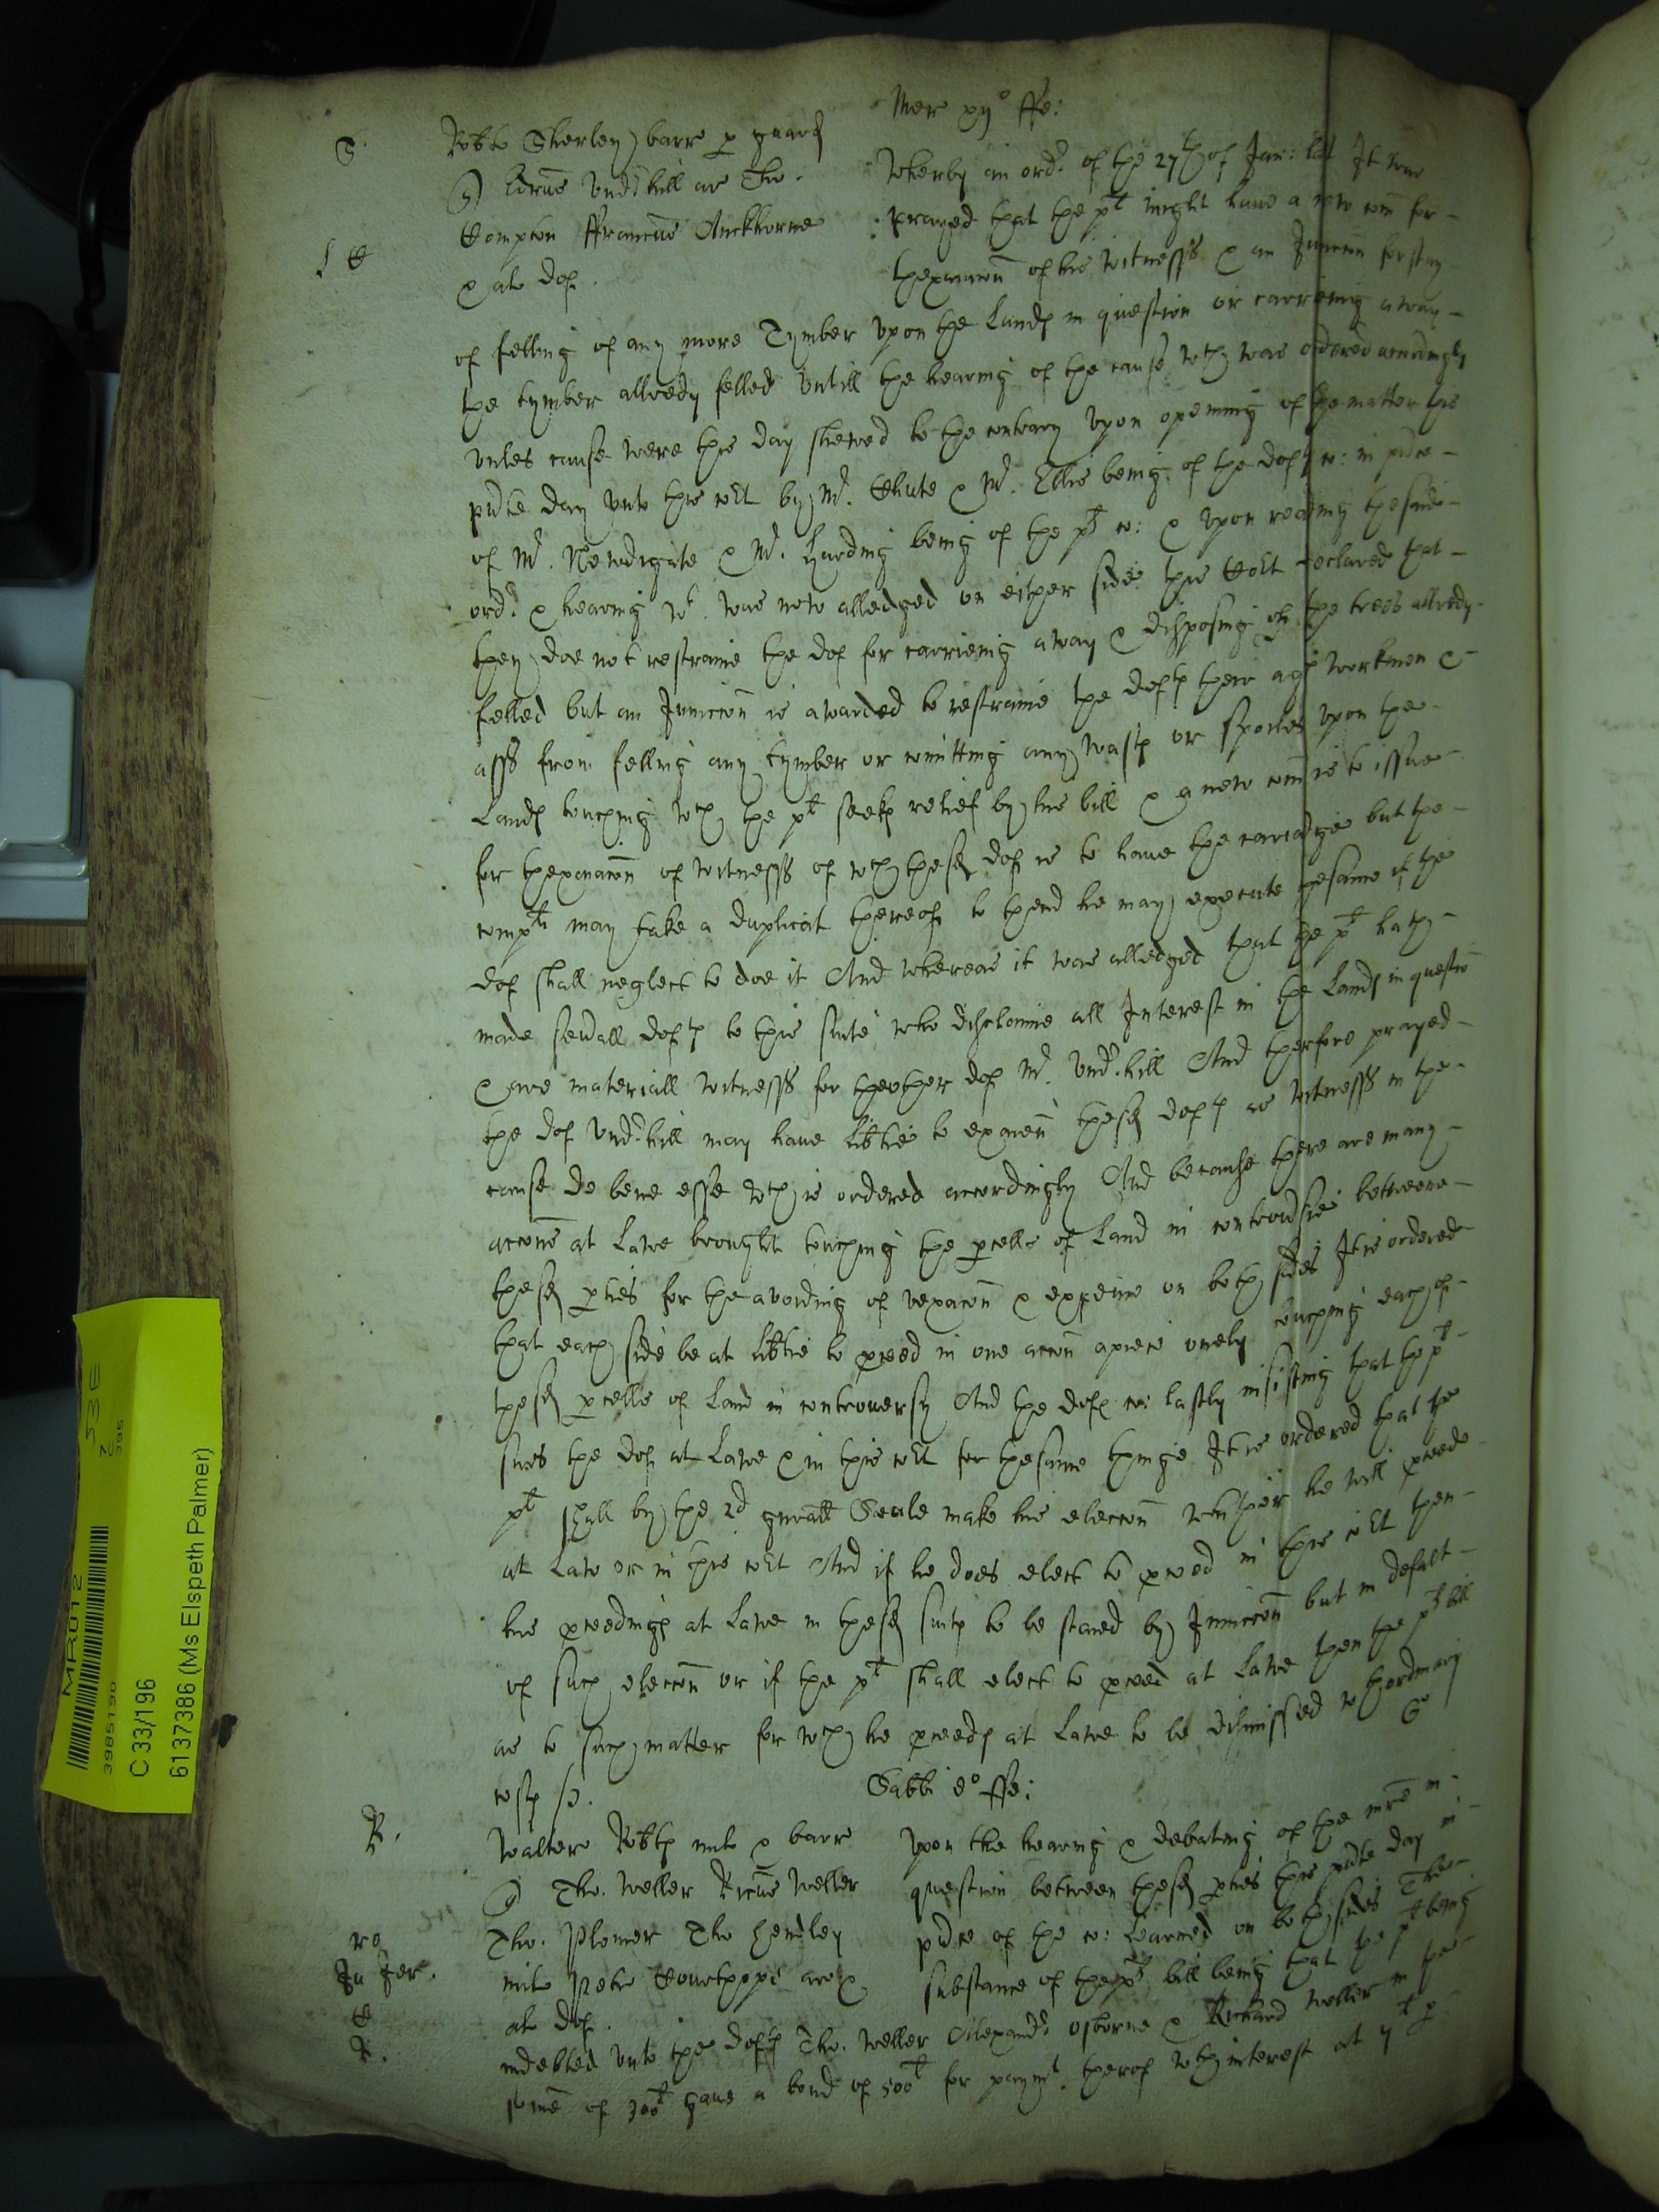 Mer xij° ffe:
S Robto Sherley barre p guard
Edrus Underhill ar Tho. Wherby an ord.r of the 27th of Jan: last It was
Compton ffrancus Auckborne prayed that the plt might have a new com for
& als def. thexanacon of his witnesses & an Junccon for stay
of felling of any more Tymber upon the Lands in question or carrieing away
the tymber allredy felled untill the hearing of the cause wch was ordered accordingly
unles cause were this day shewed to the contrary Upon opening of the matter this
pnte day unto this cort by Mr. Chute & Mr. Ellis being of the defts co: in pnce
of Mr. Newdigate & Mr. Harding being of the plts co: & upon reading thesaid
ordr & hearing wt was now alledged on either side this Cort declared that
they doe not restraine the def for carrieing away & disposing of the trees allredy
felled but an Junccon is awarded to restraine the defts their agts workmen &
asss from felling any tymber or comitting any wasts or spoiles upon the
Lands touching wch the plt seeks relief by his bill & a new com is to issue
for thexanacon of witnesses of wch thesd def is to have the cariadge but the
complt may take a duplicat thereof to thend he may execute thesame if the
def shall neglect to doe it And whereas it was alledged that the plt hath
made sevall defts to this suite who disclaime all Interest in the Lands in question
& are materiall witnesses for theother def Mr. Undrhill And therfore prayed
the def Undrhill may have libtie to examen thesd defts as witnesses in the
cause de bene esse wch is ordered accordingly And because there are many
accons at Lawe brought touching the pcells of Land in controvsie betweene
thesd pties for the avoiding of vexacon & expence on both sides It is ordered
that each side be at libtie to pceed in one accon apeece onely touching each of
thesd pcells of Land in controversy And the defts co: lastly insisting that the plt
sues the def at Lawe & in this cort for thesame thinge It is ordered that the
plt shall by the 2d gnrall Seale make his eleccon whither he will pceede
at Law or in this cort And if he does elect to pceed in this cort then
his pceedings at Lawe in thesd suits to be staied by Junccon but in defalt
of such eleccon or if the plt shall elect to pceed at Lawe then the plts bill
as to such matter for wch he pceeds at Lawe to be dismissed wth ordinary
costs
Sabbi 8° ffe:
R. Waltero Robts mil & barr Upon the hearing & debating of the mre in
Tho. Weller Ricus Weller question between thesd pties this pnte day in
Tho. Plomer Tho Hendley pnce of the co: learned on both sides The
mil Petr Courthope ar & substance of the plts bill being that the plt being
als def.
indebted unto the defts Tho. Weller Alexandr Osborne & Richard Weller in the
sume of 300l gave a bond of 500l for paymt. therof wth interest at
MR012
3985190
C 33/196
6137386 (Ms Elspeth Palmer)